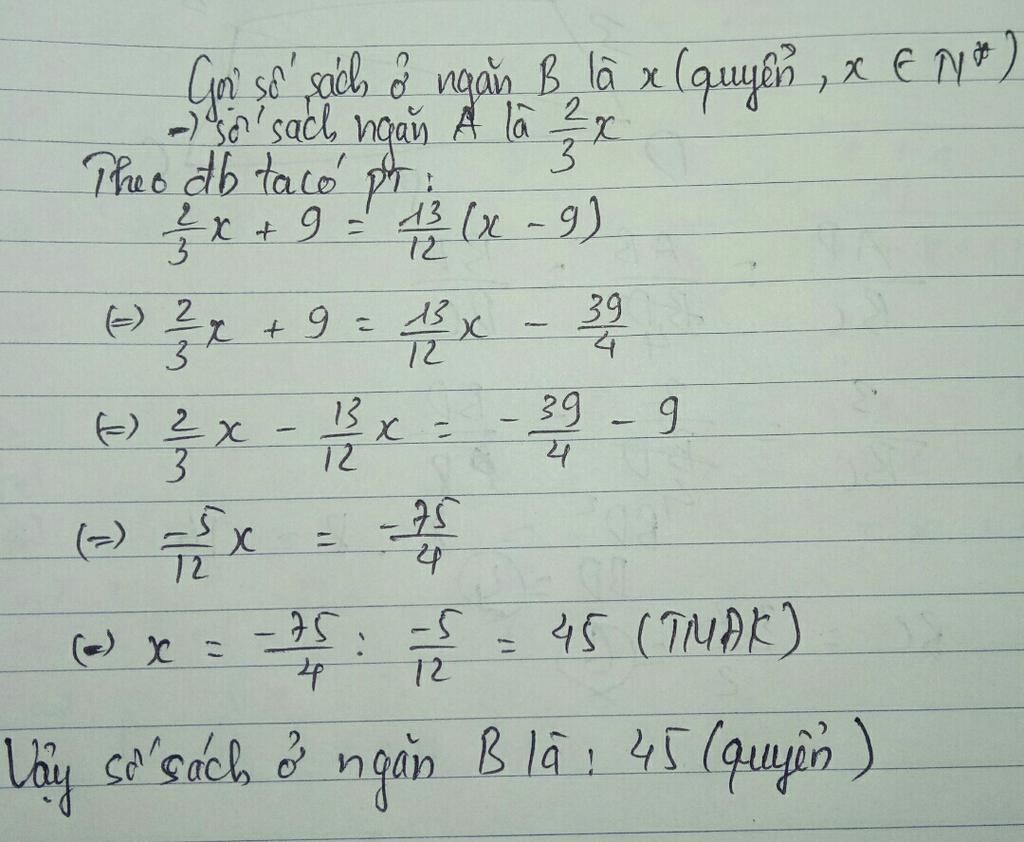 Gọi số sách ở ngăn B là x (quyển, x ∈ N*)
-) số sách ngăn A là 2/3 x
Theo đb ta có pT :
2/3 x + 9 = 13/12 (x - 9)
(=) 2/3 x + 9 = 13/12 x - 39/4
(=) 2/3 x - 13/12 x = - 39/4 - 9
(=) -5/12 x = -75/4
(=) x = -75/4 : -5/12 = 45 (TMĐK)
Vậy số sách ở ngăn B là : 45 (quyển)